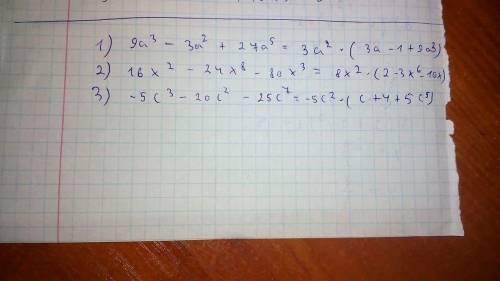 1) 9a³ - 3a² + 27a⁵ = 3a² · (3a - 1 + 9a³)
2) 16x² - 24x⁸ - 80x³ = 8x² · (2 - 3x⁶ - 10x)
3) -5c³ - 20c² - 25c⁷ = -5c² · (c + 4 + 5c⁵)